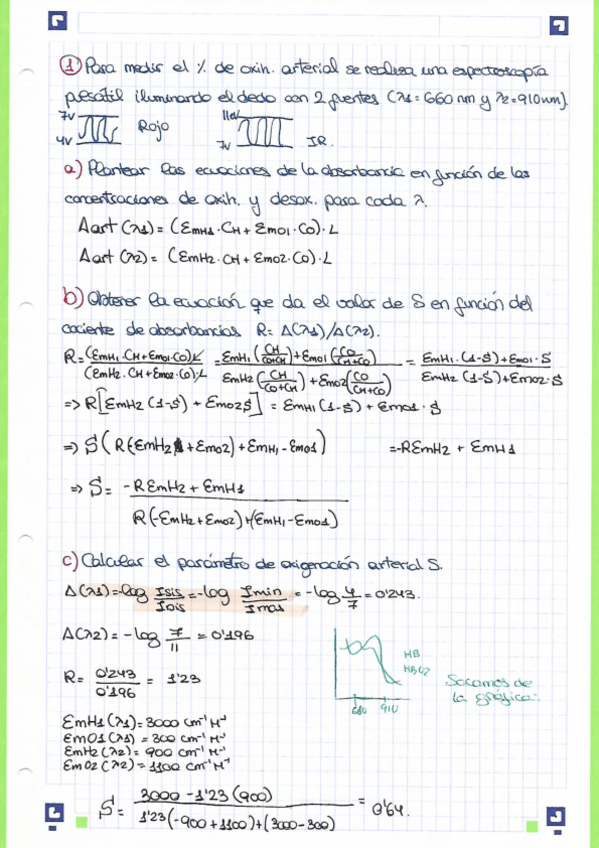 1) Para medir el % de oxih. arterial se realiza una espectroscopía
pulsátil iluminando el dedo con 2 fuentes (λ1=660 nm y λ2=910nm)
7V 4V Rojo 11V 7V IR.
a) Plantear las ecuaciones de la absorbancia en función de las
concentraciones de oxih. y desox. para cada λ.
Aart (λ1) = (εmH1·CH + εmO1·CO)·L
Aart (λ2) = (εmH2·CH + εmO2·CO)·L
b) Obtener la ecuación que da el valor de S en función del
cociente de absorbancias R = A(λ1)/A(λ2).
R = (εmH1·CH+εmO1·CO)·L / (εmH2·CH+εmO2·CO)·L = εmH1(CH/CO+CH)+εmO1(CO/CH+CO) / εmH2(CH/CO+CH)+εmO2(CO/CH+CO) = εmH1·(1-S)+εmO1·S / εmH2·(1-S)+εmO2·S
=> R[εmH2(1-S) + εmO2S] = εmH1(1-S) + εmO1·S
=> S(R(-εmH2+εmO2)+εmH1-εmO1) =-RεmH2 + εmH1
=> S = -RεmH2 + εmH1 / R(-εmH2+εmO2)+(εmH1-εmO1)
c) Calcular el parámetro de oxigenación arterial S.
A(λ1)=-log Isis/Iois =-log Imin/Imax = -log 4/7 = 0'243.
A(λ2) = -log 7/11 = 0'196
R = 0'243/0'196 = 1'23
HB
HBO2
680 910
Sacamos de
la gráfica:
εmH1(λ1)=3000 cm⁻¹M⁻¹
εmO1(λ1) = 300 cm⁻¹M⁻¹
εmH2(λ2) = 900 cm⁻¹M⁻¹
εmO2(λ2) = 1100 cm⁻¹M⁻¹
S = 3000 - 1'23(900) / 1'23(-900+1100)+(3000-300) = 0'64.